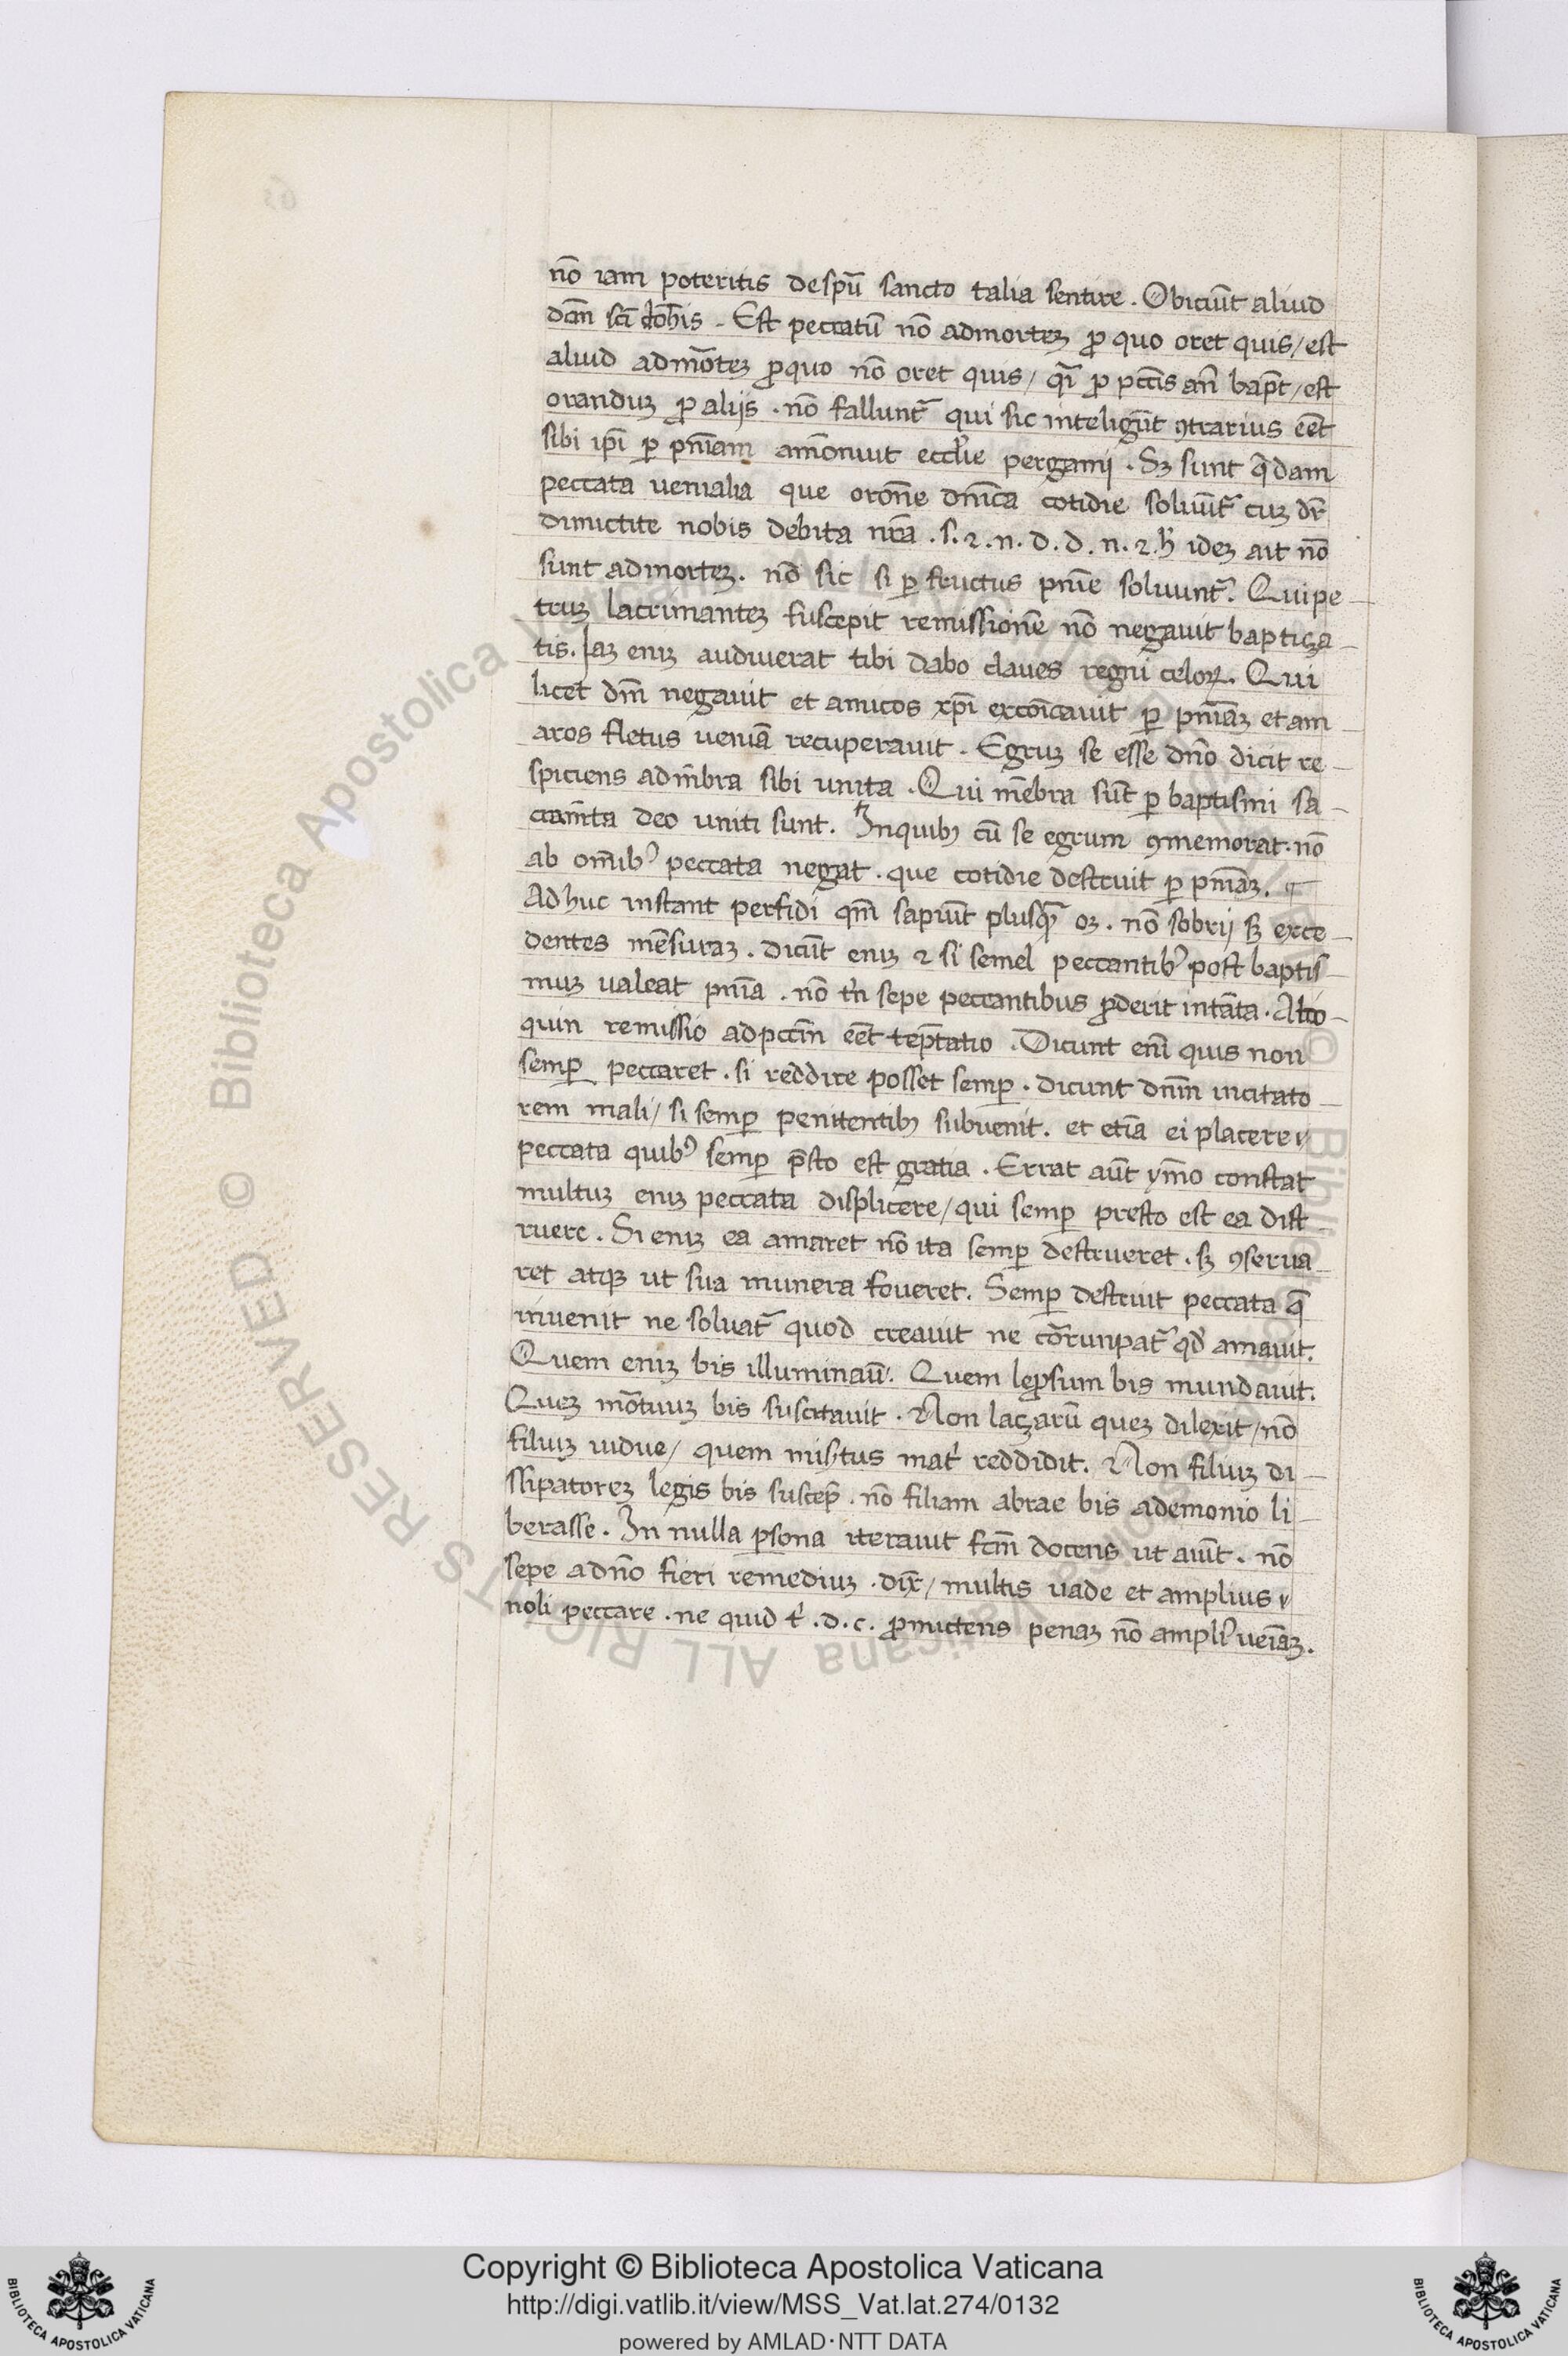 nō iam poteritis despū sancto talia sentire. Obiciūt aliud
dcm̄ sc̄i Iohīs. Est peccatū nō admortēꝫ ꝓ quo oret quis / est
aliud admōteꝫ ꝓquo nō oret quis / qꝛ ꝓ pcc̄is an̄ bapt̄ / est
oranduꝫ ꝓ alijs. nō fallunt̄ qui sic inteligūt ꝯtrarius eēt
sibi ip̄i ꝑ pn̄iam amonuit eccl̄ie pergami. Sꝫ sunt q̄dam
peccata uenialia que orōne dn̄ica cotidie soluūt̄ cuꝫ dr̄
dimictite nobis debita nr̄a. s. ⁊. n. d. d. n. ⁊. h̄ ideꝫ ait nō
sunt admorteꝫ. nō sic si ꝑ fructus pn̄ie soluunt̄. Qui pe-
truꝫ lacrimanteꝫ suscepit remissionē nō negauit baptiça-
tis. Iaꝫ eniꝫ audiuerat tibi dabo claues regni celoꝝ. Qui
licet dm̄ negauit et amicos xp̄i excōicauit ꝑ pn̄iaꝫ et am-
aros fletus ueniā recuperauit. Egruꝫ se esse dn̄o dicit re-
spiciens adm̄bra sibi unita. Qui mēbra sūt ꝑ baptismi sa-
cram̄ta deo uniti sunt. Inquibꝫ cū se egrum ꝯmemorat. nō
ab om̄ibꝰ peccata negat. que cotidie destruit ꝑ pn̄iaꝫ.
Adhuc instant perfidi qm̄ sapiūt plusqꝫ oꝫ. nō sobrij sꝫ exce-
dentes mēsuraꝫ. dicūt eniꝫ ⁊ si semel peccantibꝰ post baptis-
muꝫ ualeat pn̄ia. nō tn̄ sepe peccantibus ꝓderit intāta. Alio-
quin remissio adpccm̄ eēt temptatio. Dicunt eni quis non
semꝑ peccaret. si reddire posset semꝑ. dicunt dn̄m incitato-
rem mali / si semꝑ penitentibꝫ subuenit. et etiā ei placere
peccata quibꝰ semꝑ p̄sto est gratia. Errat aūt ym̄o constat
multuꝫ eniꝫ peccata displicere / qui semꝑ presto est ea dist
ruere. Si eniꝫ ea amaret nō ita semꝑ destrueret. sꝫ ꝯserua
ret atqꝫ ut sua munera foueret. Semꝑ destruit peccata q̄
inuenit ne soluat̄ quod creauit ne cōrunpat̄ qd̄ amauit.
Quem eniꝫ bis illuminaū. Quem leꝓsum bis mundauit.
Queꝫ mōtuuꝫ bis suscitauit. Non laçarū queꝫ dilexit / nō
filiuꝫ uidue / quem misertus mat̄i reddidit. Non filiuꝫ di-
ssipatoreꝫ legis bis suscep̄. nō filiam abrae bis ademonio li-
berasse. In nulla ꝑsona iterauit fcm̄ docens ut aiūt. nō
sepe adn̄o fieri remediuꝫ. dix̄ / multis uade et amplius
noli peccare. ne quid t̄. d. c. ꝓmictens penaꝫ nō ampliꝰ ueīaꝫ.
Copyright © Biblioteca Apostolica Vaticana
http://digi.vatlib.it/view/MSS_Vat.lat.274/0132
powered by AMLAD·NTT DATA
BIBLIOTECA APOSTOLICA VATICANA
BIBLIOTECA APOSTOLICA VATICANA
© Biblioteca Apostolica Vaticana ALL RIGHTS RESERVED